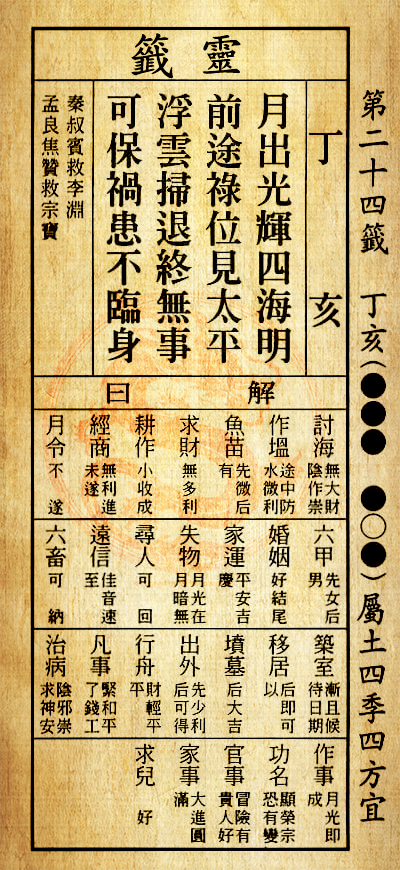 第二十四籤　丁亥(●●●　●○●)屬土四季四方宜
靈籤
丁亥
月出光輝四海明
前途祿位見太平
浮雲掃退終無事
可保禍患不臨身
秦叔賓救李淵
孟良焦贊救宗寶
解曰
討海 無大財陰作崇
作塭 途中防水微利
魚苗 先微后有
求財 無多利
耕作 小收成
經商 無利進未遂
月令 不遂
六甲 先女后男
婚姻 好結尾
家運 平安吉慶
失物 月光在月暗無
尋人 可回
遠信 佳音速至
六畜 可納
築室 漸且候待日期
移居 后即可以
墳墓 后大吉
出外 先少利后可得
行舟 財輕平平
凡事 緊和平了錢工
治病 陰邪崇求神安
作事 月光即成
功名 顯榮宗恐有變
官事 冒險有貴人好
家事 大進圓滿
求兒 好